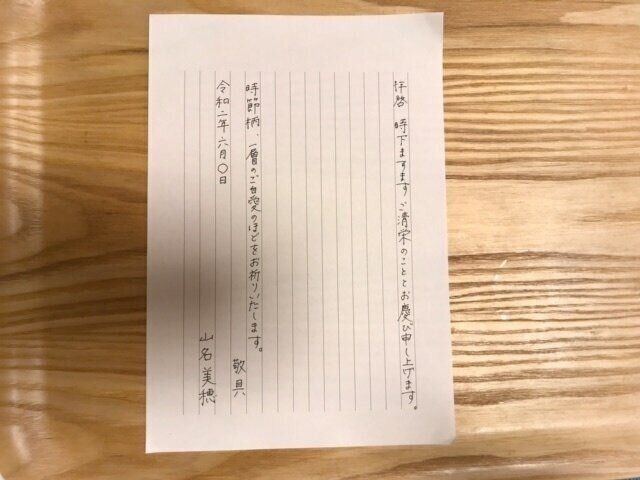 拝啓 時下ますますご清栄のこととお慶び申し上げます。
時節柄、一層のご自愛のほどをお祈りいたします。
敬具
令和二年六月〇日
山名美穂